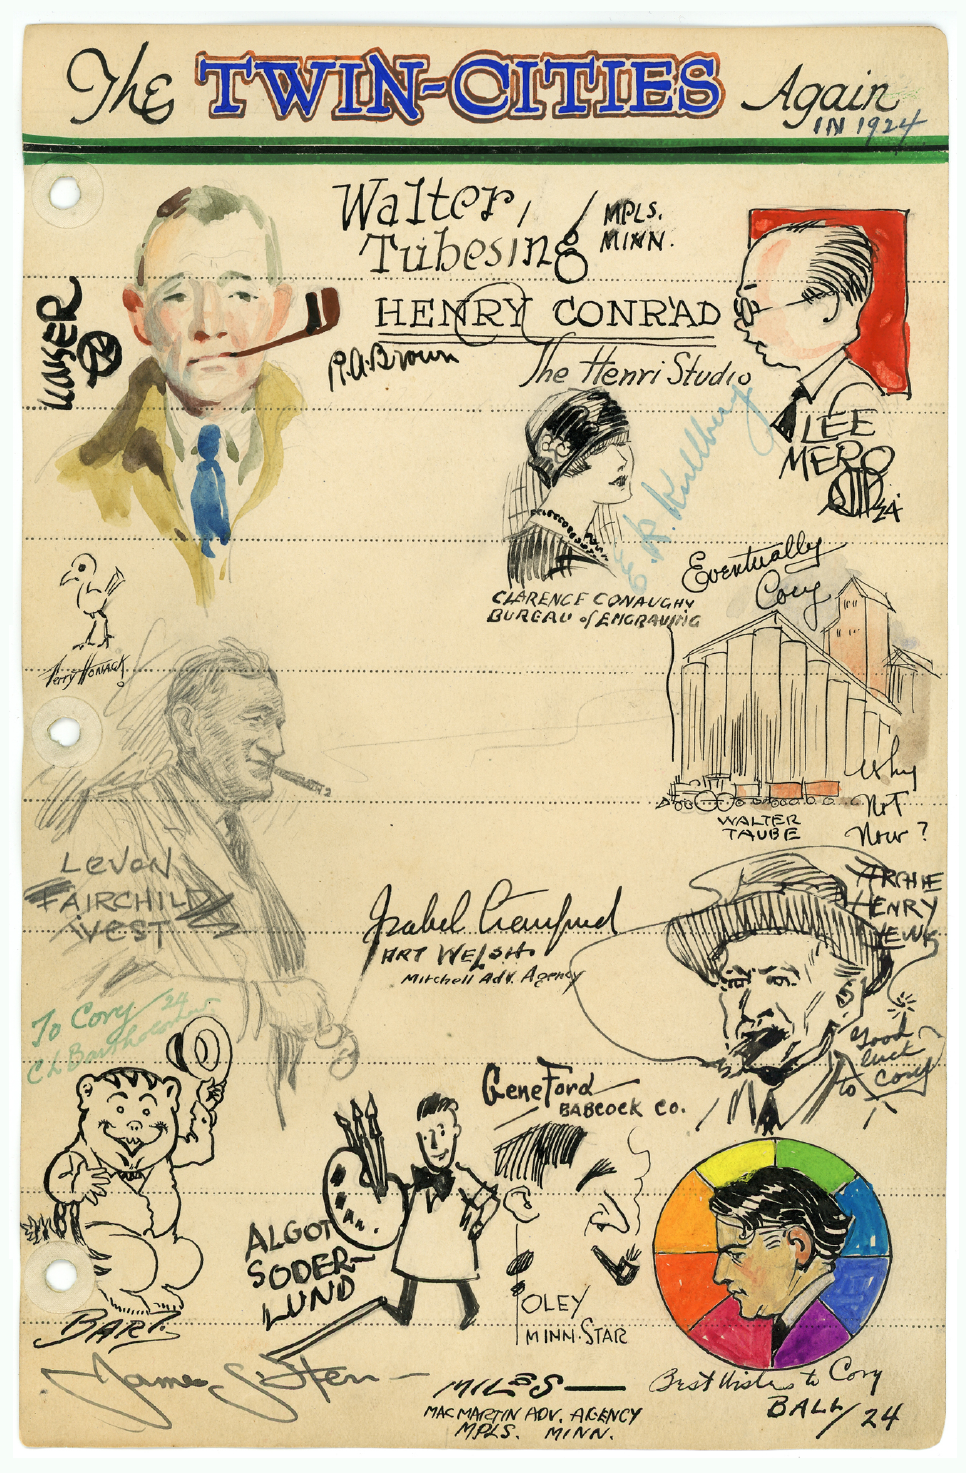 The TWIN-CITIES Again
IN 1924
Walter
Tubesing
MPLS.
MINN.
KAISER
HENRY CONRAD
R.A. Brown
The Henri Studio
LEE
MERO
24
E. R. Kullberg
CLARENCE CONAUGHY
BUREAU of ENGRAVING
Eventually
Cory
Why
Not
Now?
WALTER
TAUBE
LEVON
FAIRCHILD
WEST
Isabel
ART WELSH
Mitchell Adv. Agency
ARCHIE
HENRY
LEWIS
Good
luck
to Cory
To Cory /24
GeneFord
BABCOCK CO.
ALGOT
SODER-
LUND
OLEY
MINN. STAR
BART.
James
MILES
MAC MARTIN ADV. AGENCY
MPLS. MINN.
Best Wishes to Cory
BALL/24